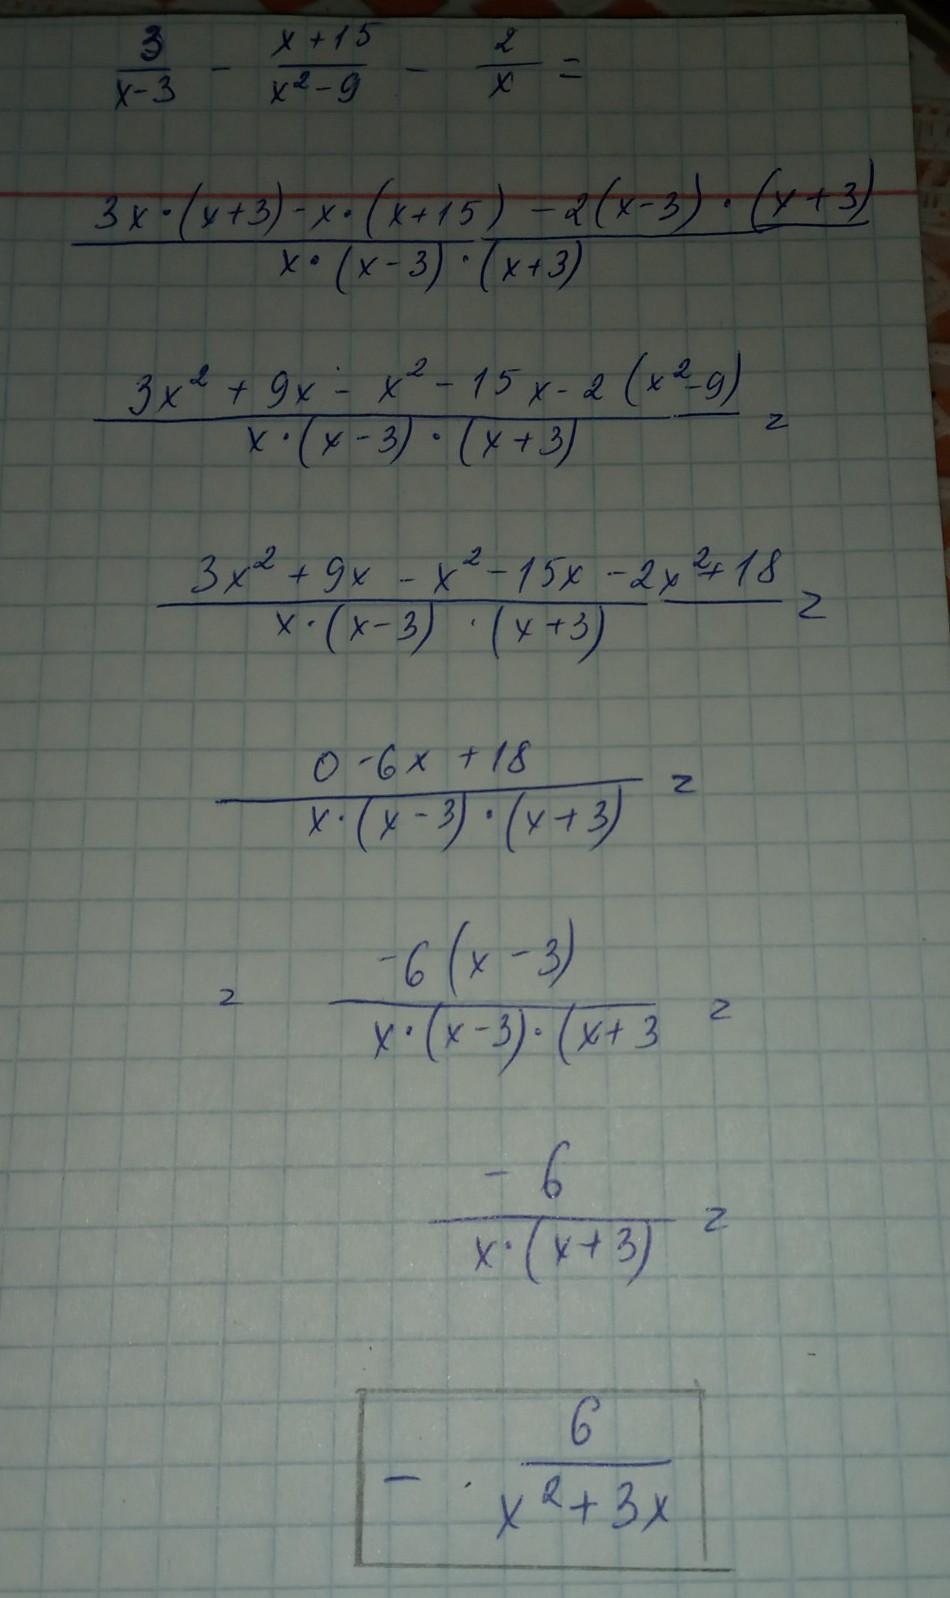 3/(x-3) - (x+15)/(x²-9) - 2/x =
(3x·(x+3)-x·(x+15)-2(x-3)·(x+3))/(x·(x-3)·(x+3))
(3x²+9x-x²-15x-2(x²-9))/(x·(x-3)·(x+3)) =
(3x²+9x-x²-15x-2x²+18)/(x·(x-3)·(x+3)) =
(0-6x+18)/(x·(x-3)·(x+3)) =
= (-6(x-3))/(x·(x-3)·(x+3) =
(-6)/(x·(x+3)) =
- 6/(x²+3x)